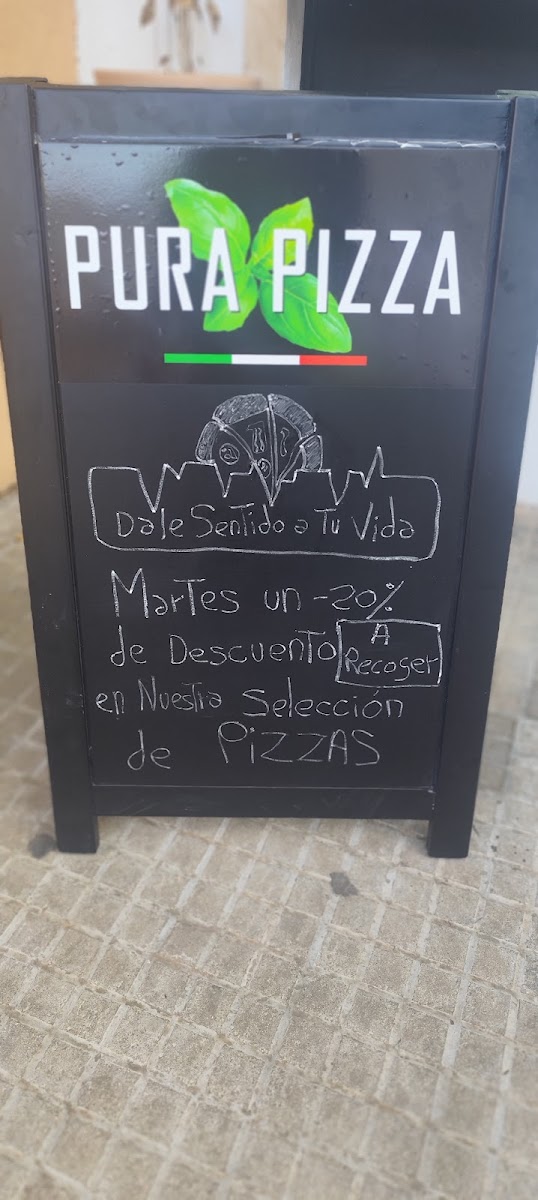 PURA PIZZA
Dale Sentido a Tu Vida
Martes un -20%
de Descuento A Recoger
en Nuestra Selección
de PIZZAS